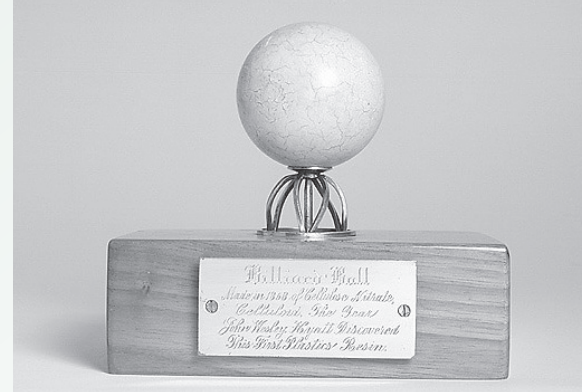 Billiard Ball
Made in 1868 of Cellulose Nitrate,
Celluloid. The Year
John Wesley Hyatt Discovered
This First Plastics Resin.